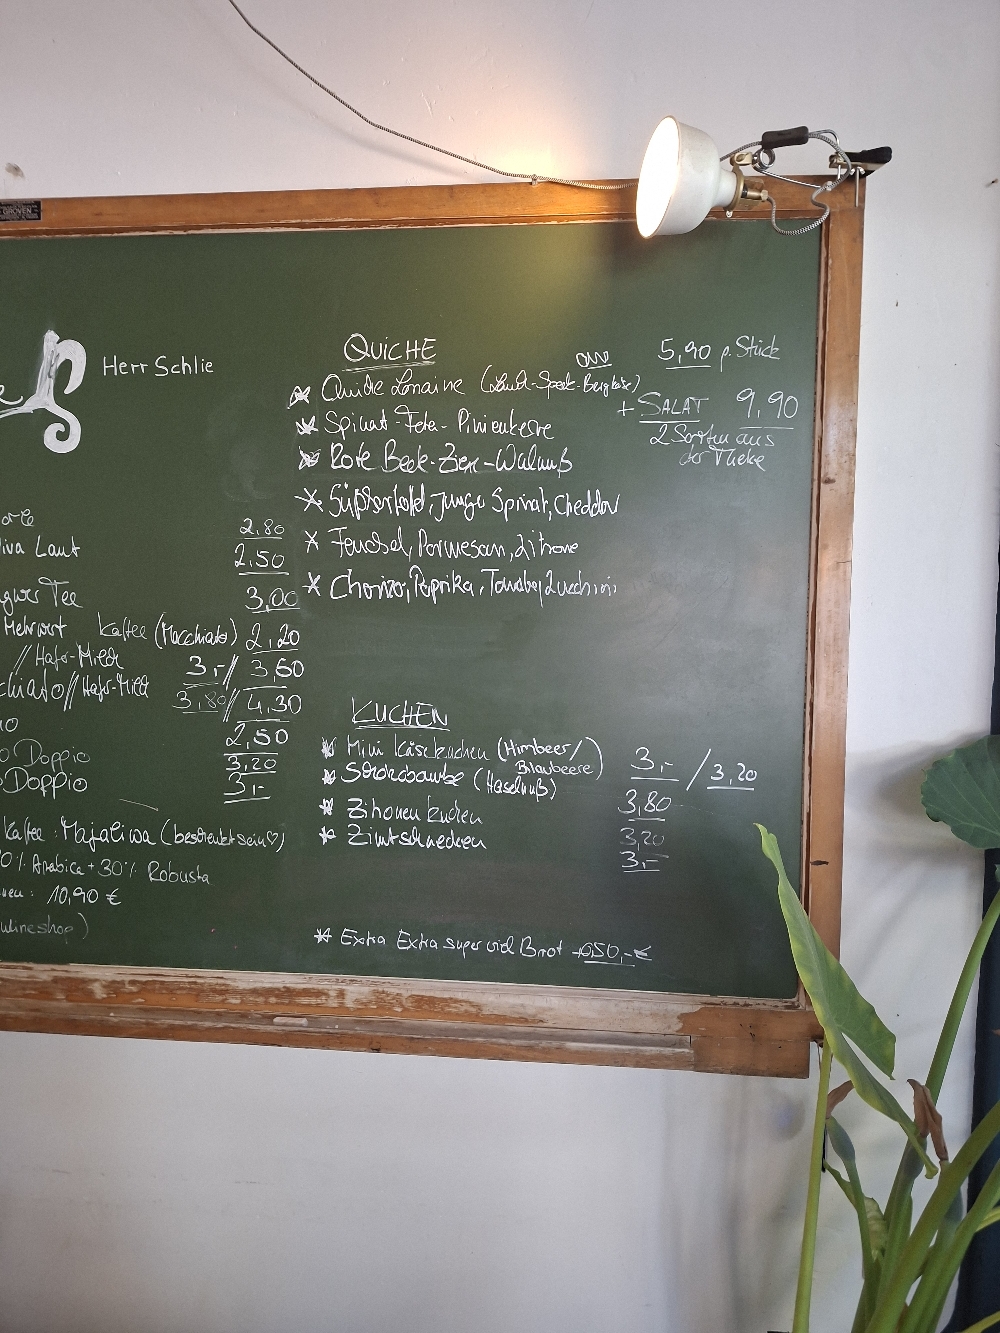 GROVEN
Herr Schlie
QUICHE 5,90 p. Stück
Quiche Lorraine (Lauch-Speck-Bergkäse)
+ SALAT 9,90
2 Sorten aus
der Theke
Spinat-Feta-Pinienkerne
Rote Beete-Ziege-Walnuß
Süßkartoffel, junger Spinat, Cheddar
Fenchel, Parmesan, Zitrone
Chorizo, Paprika, Tomate, Zucchini
2,80
Laut 2,50
Tee 3,00
Mehrwert Kaffee (Macchiato) 2,20
// Hafer-Milch 3,- // 3,60
chiato // Hafer-Milch 3,80 // 4,30
2,50
o Doppio 3,20
o Doppio 3,-
Kaffee: Majaliwa (beschenkt sein ♡)
0% Arabica + 30% Robusta
10,90 €
nlineshop)
KUCHEN
Mini Käsekuchen (Himbeer/ 3,- / 3,20
Blaubeere)
Schokobombe (Haselnuß) 3,80
Zitronenkuchen 3,20
Zimtschnecken 3,-
* Extra Extra super viel Brot +0,50,-€